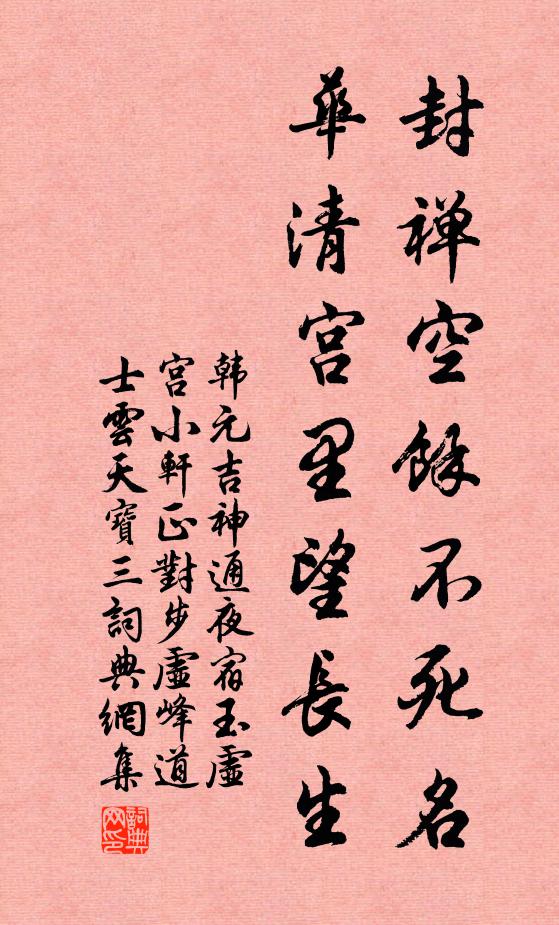 封禅空餘不死名
華清宫里望長生
韩元吉神通夜宿玉虛
宫小軒正對步虛峰道
士雲天寶三詞典網集
詞典网印